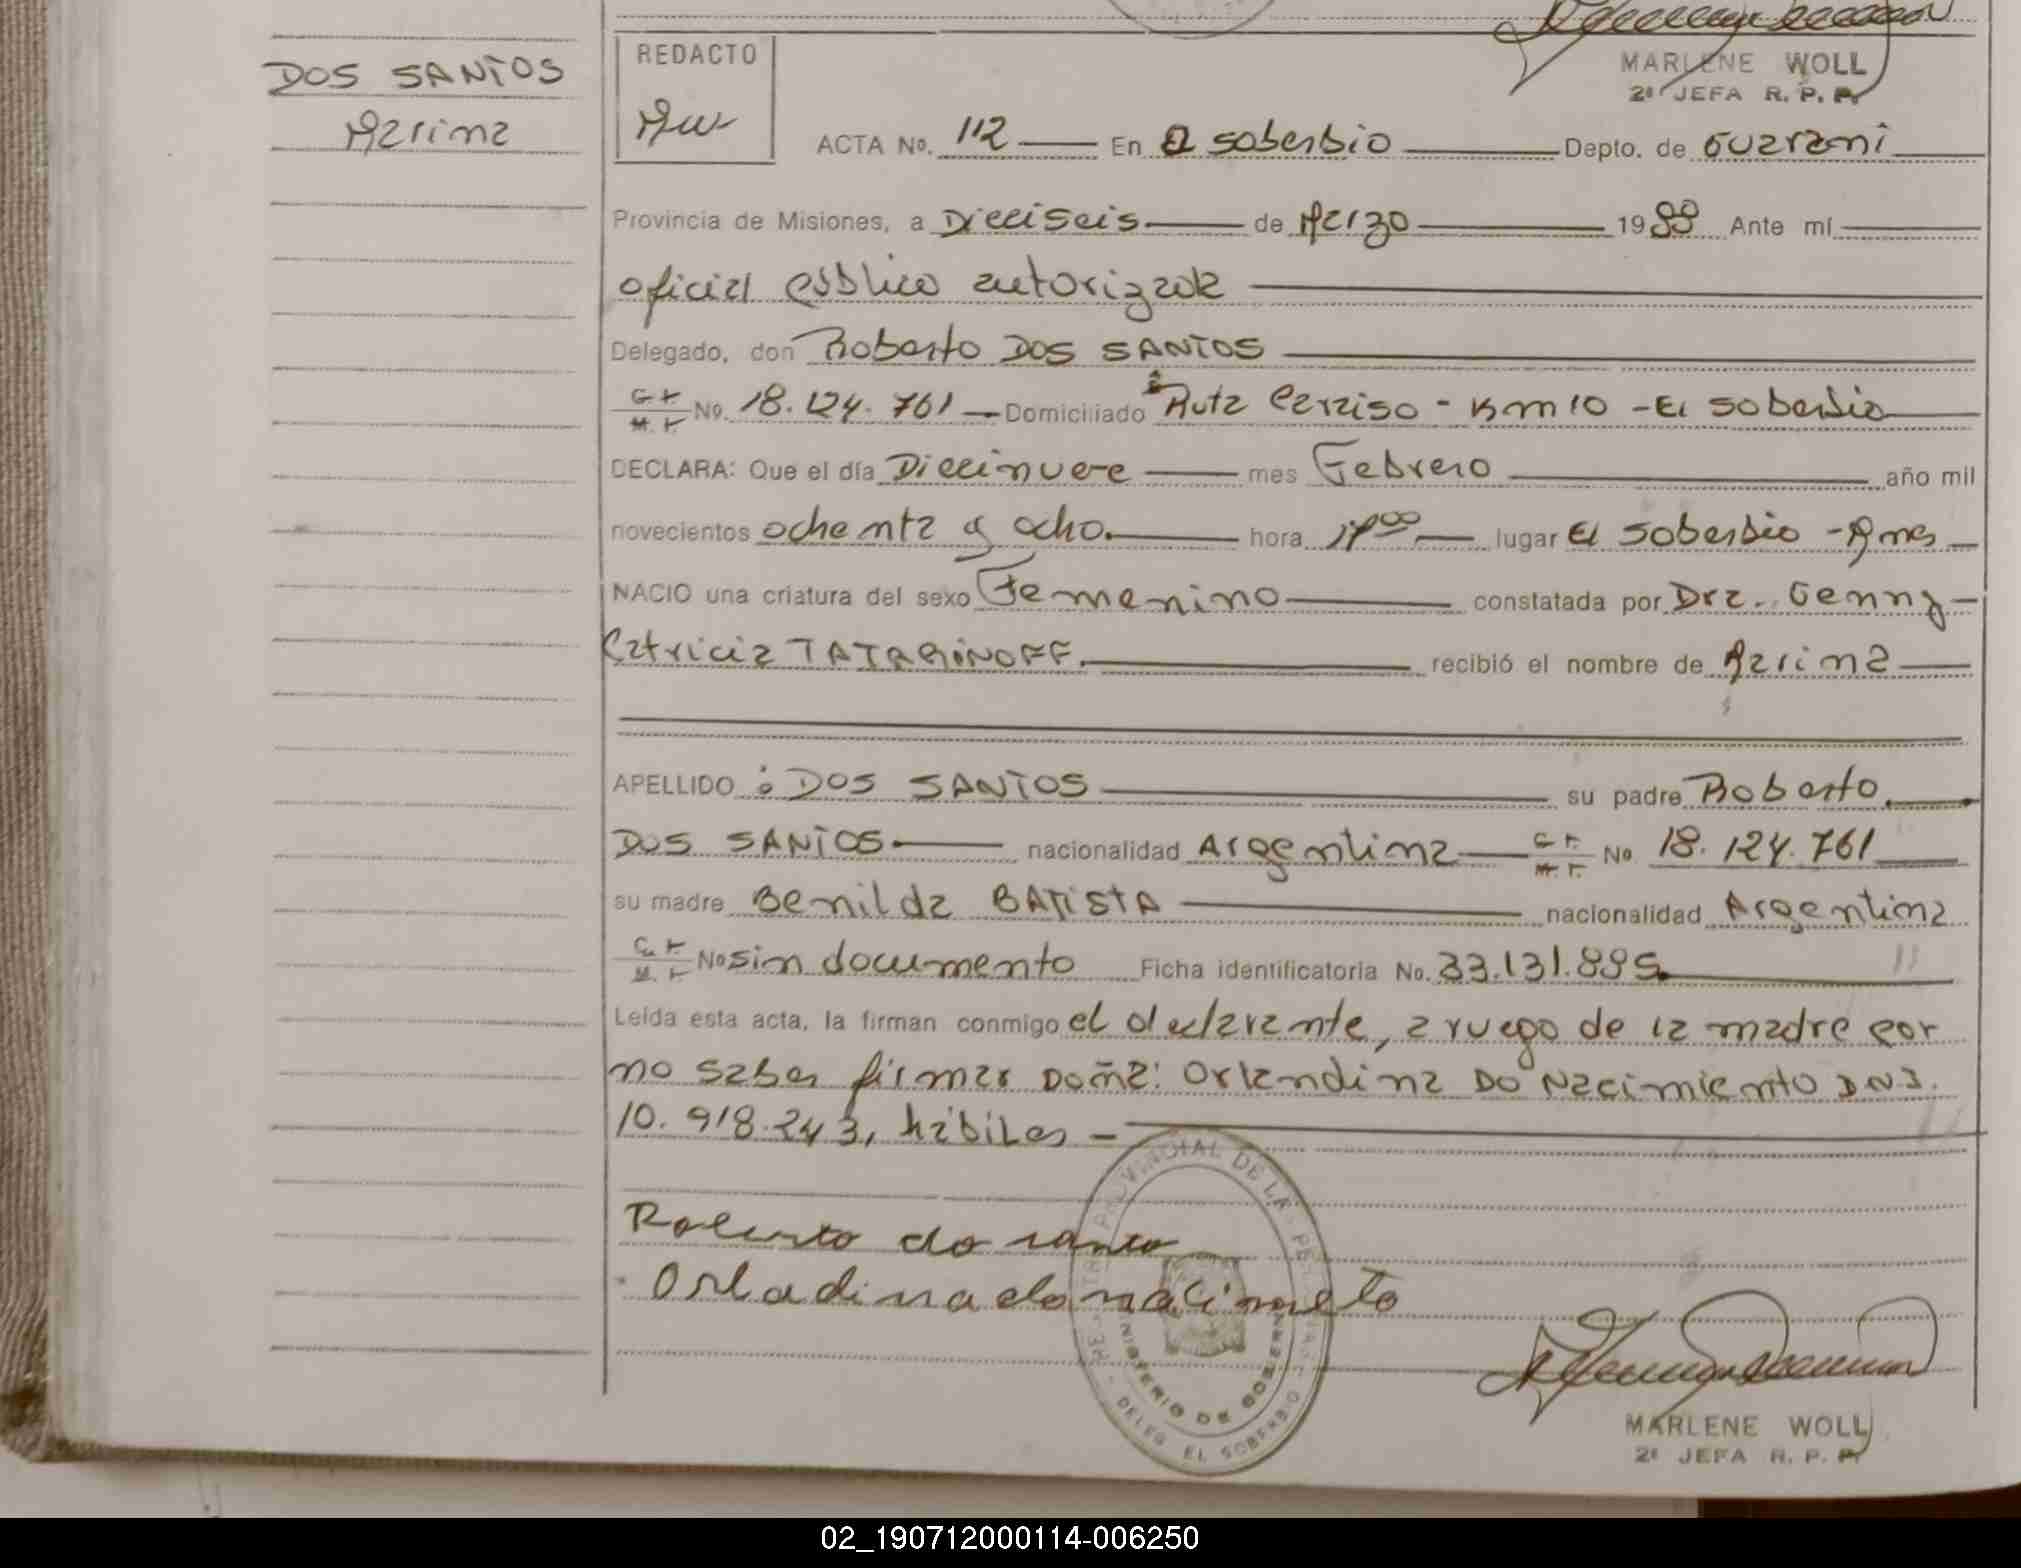 MARLENE WOLL
2ª JEFA R. P. P.
DOS SANTOS
Marina
REDACTO
MW
ACTA No. 112 En El soberbio Depto. de Guarani
Provincia de Misiones, a Dieciseis de Marzo 1988 Ante mí
oficial público autorizada
Delegado, don Roberto DOS SANTOS
No. 18.124.761 Domiciliado Ruta Paraiso - Km 10 - El soberbio
DECLARA: Que el día Diecinueve mes Febrero año mil
novecientos ochenta y ocho. hora lugar El soberbio - Mnes
NACIO una criatura del sexo Femenino constatada por Dra. Genny
Patricia TATARINOFF. recibió el nombre de Marina
APELLIDO : DOS SANTOS su padre Roberto
DOS SANTOS nacionalidad Argentina No. 18.124.761
su madre Benilda BATISTA nacionalidad Argentina
No sin documento Ficha identificatoria No. 33.131.885
Leída esta acta, la firman conmigo el declarante, a ruego de la madre por
no saber firmar Doña: Orlandina DO Nacimiento DNI.
10.918.243, hábiles -
Roberto do santo
Orladina do nacimeto
REGISTRO PROVINCIAL DE LAS PERSONAS
MINISTERIO DE GOBIERNO
DELEG. EL SOBERBIO
MARLENE WOLL
2ª JEFA R. P. P.
02_190712000114-006250